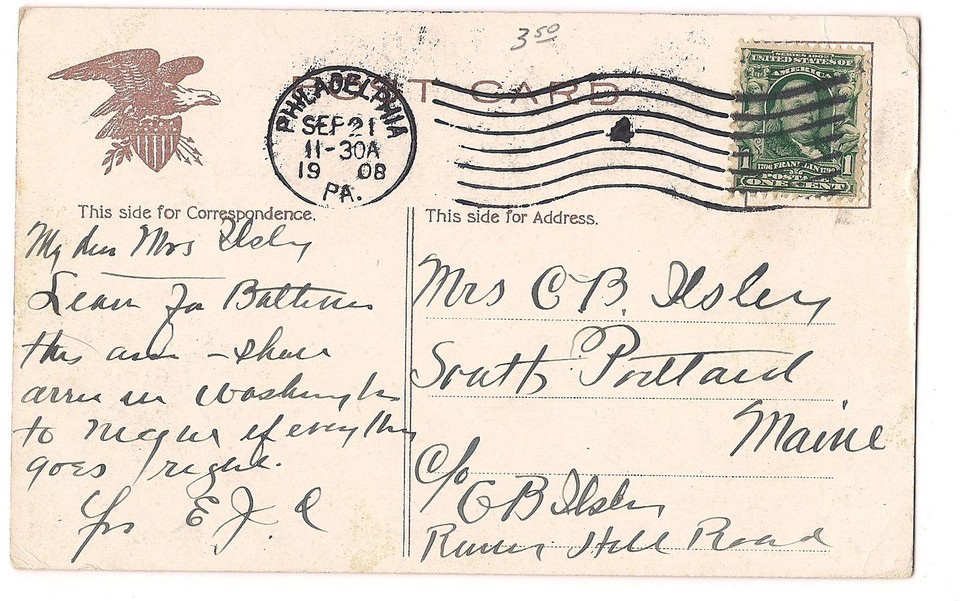 3 50
POST CARD
PHILADELPHIA
SEP 21
11-30A
1908
PA.
4
SERIES 1902
UNITED STATES OF
AMERICA
1706 FRANKLIN 1790
POSTAGE
1 1
ONE CENT
This side for Correspondence.
My dear Mrs Ilsley
Leave for Baltimore
this a.m. - shall
arrive in Washington
to night if everything
goes right.
Yrs E. J. C
This side for Address.
Mrs C B. Ilsley
South Portland
Maine
C/o
C B Ilsley
Hill Road